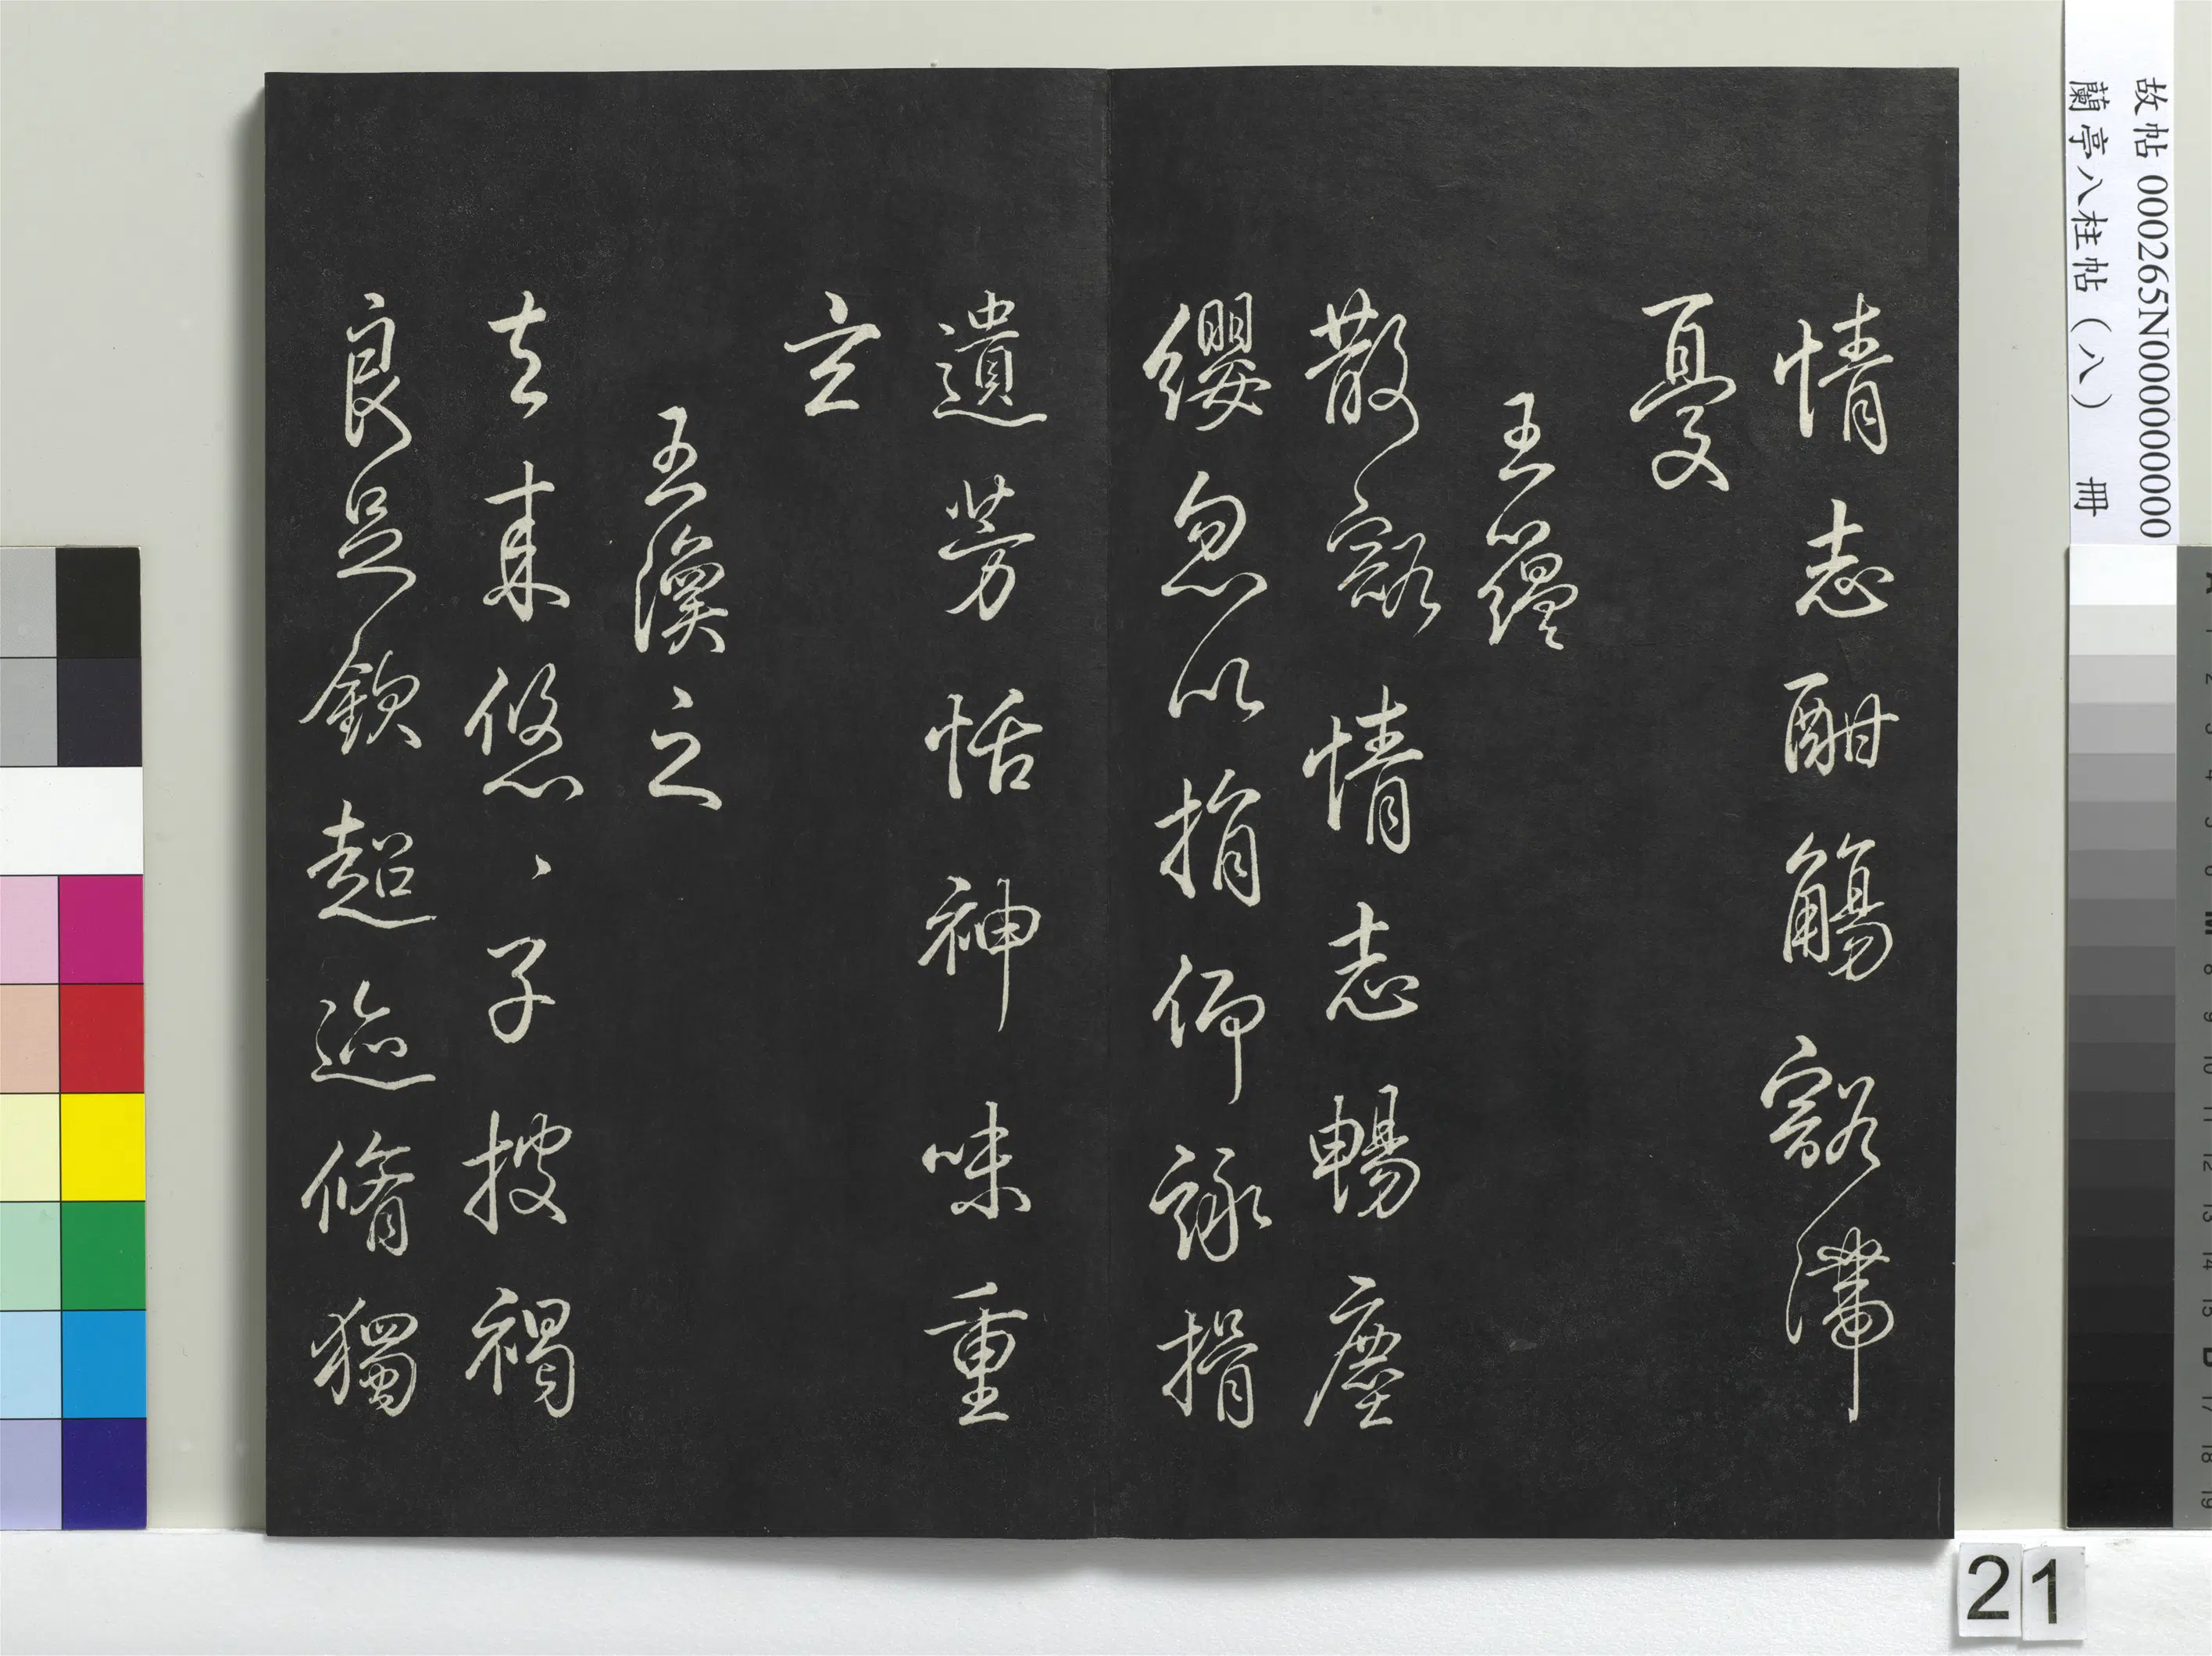 故帖 000265N000000000
蘭亭八柱帖（八） 冊
情志酣觴豁滯
憂
王蘊
散豁情志暢塵
纓忽以捐仰詠揖
遺芳恬神味重
玄
王渙之
去來悠々子披褐
良足欽超迹脩獨
21